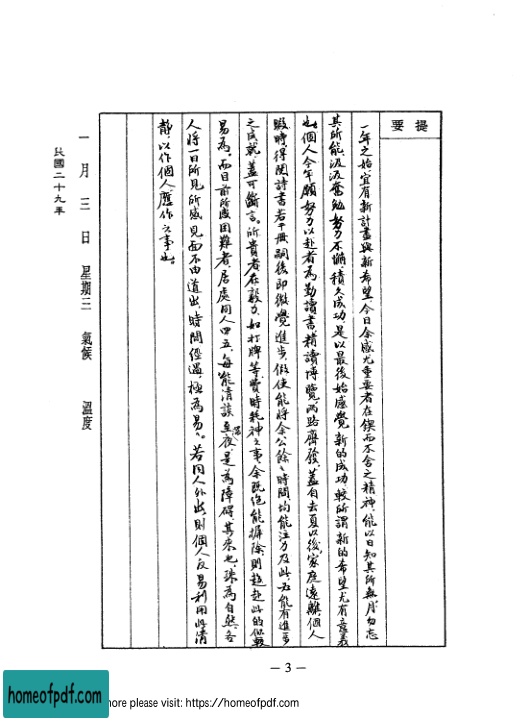 提要
一年之始,宜有新計畫與新希望,今日余感尤重要者在鍥而不舍之精神,能以日知其所無,月勿忘
其所能,汲汲奮勉,努力不懈,積久成功,是以最後始感覺新的成功較所謂新的希望尤有意義
也。個人今年願努力以赴者為勤讀書,精讀博覽,兩路齊發,蓋自去夏以後,家庭遠離,個人
暇時得閱詩書若干冊,嗣後即微覺進步,假使能將余公餘之時間均能注力及此,
之成就,蓋可斷言。所貴者在毅力,如打牌等費時耗神之事余既絕能摒除,則
易為,而目前所感困難者,居處同人四五,每能清談至深夜,是為障碍,其來也,殊為自然,各
人將一日所見所感,見面不由道出,時間經過,極為易易。若同人外出,則個人反易利用此清
靜,以作個人應作之事也。
一月三日 星期三 氣候 溫度
民國二十九年
— 3 —
homeofpdf.com
more please visit: https://homeofpdf.com